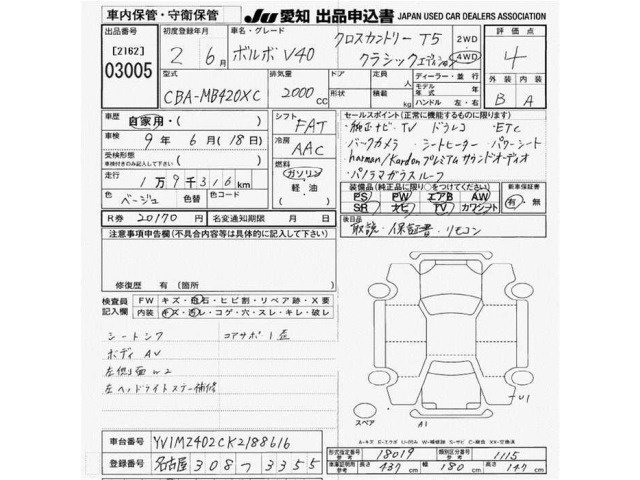 車内保管・守衛保管
JU 愛知 出品申込書 JAPAN USED CAR DEALERS ASSOCIATION
出品番号
[2162]
03005
初度登録年月
2年 6月
車名・グレード
ボルボ V40
クロスカントリー T5
クラシックエディション
2WD
4WD
評価点
4
外装 内装
B A
型式
CBA-MB420XC
排気量
2000cc
ドア
形状
定員 人
積載 kg
ディーラー・並行
モデル年式 年
ハンドル 左・右
車歴
自家用・( )
車検
9年 6月(18日)
受検形態
車検付きのみ記入して下さい ( )
走行
1万9千316km
色 ベージュ 色替 色コード
R券 20170 円 名変通知期限 月 日
シフト
FAT
冷房
AAC
燃料
ガソリン
軽・油
( )
セールスポイント(正常に機能するものに限る)
・純正ナビ・TV ドラレコ ・ETC
・バークカメラ ・シートヒーター ・パワーシート
・harman/kardonプレミアムサウンドオーディオ
・パノラマガラスルーフ
装備品(純正品に限り○をつけてください)
PS PW エアB AW
SR ナビ TV カワシート
新車保証書
有・無
後日品
取説・保証書・リモコン
注意事項申告欄(不具合内容等は具体的に記入して下さい)
修復歴 有(箇所 )
検査員記入欄
FW キズ・飛石・ヒビ割・リペア跡・X要
内装 キズ・汚レ・コゲ・穴・スレ・キレ・破レ
シートシワ コアサポ1歪
ボディ AU
左側面W2
左ヘッドライトステー補修
スペア
A1
U1
A-キズ E-エクボ U-凹み W-補修跡 S-サビ C-腐蝕 XX-交換済
車台番号 YV1MZ402CK2188616
登録番号 名古屋 308 つ 3355
形式指定番号 参考 18019 類別区分番号 参考 1115
車車証明用 参考 長さ 437cm 幅 180cm 高さ 147cm